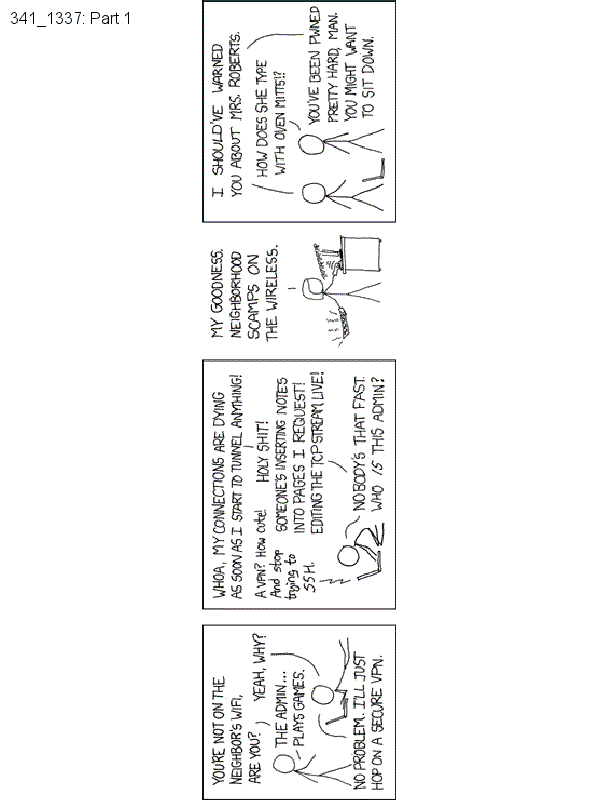 341_1337: Part 1
YOU'RE NOT ON THE
NEIGHBOR'S WIFI,
ARE YOU?
YEAH, WHY?
THE ADMIN...
PLAYS GAMES.
NO PROBLEM. I'LL JUST
HOP ON A SECURE VPN.
WHOA, MY CONNECTIONS ARE DYING
AS SOON AS I START TO TUNNEL ANYTHING!
A VPN? How cute!
And stop
trying to
SSH.
HOLY SHIT!
SOMEONE'S INSERTING NOTES
INTO PAGES I REQUEST!
EDITING THE TCP STREAM LIVE!
NOBODY'S THAT FAST.
WHO IS THIS ADMIN?
MY GOODNESS.
NEIGHBORHOOD
SCAMPS ON
THE WIRELESS.
I SHOULD'VE WARNED
YOU ABOUT MRS. ROBERTS.
HOW DOES SHE TYPE
WITH OVEN MITTS!?
YOU'VE BEEN PWNED
PRETTY HARD, MAN.
YOU MIGHT WANT
TO SIT DOWN.